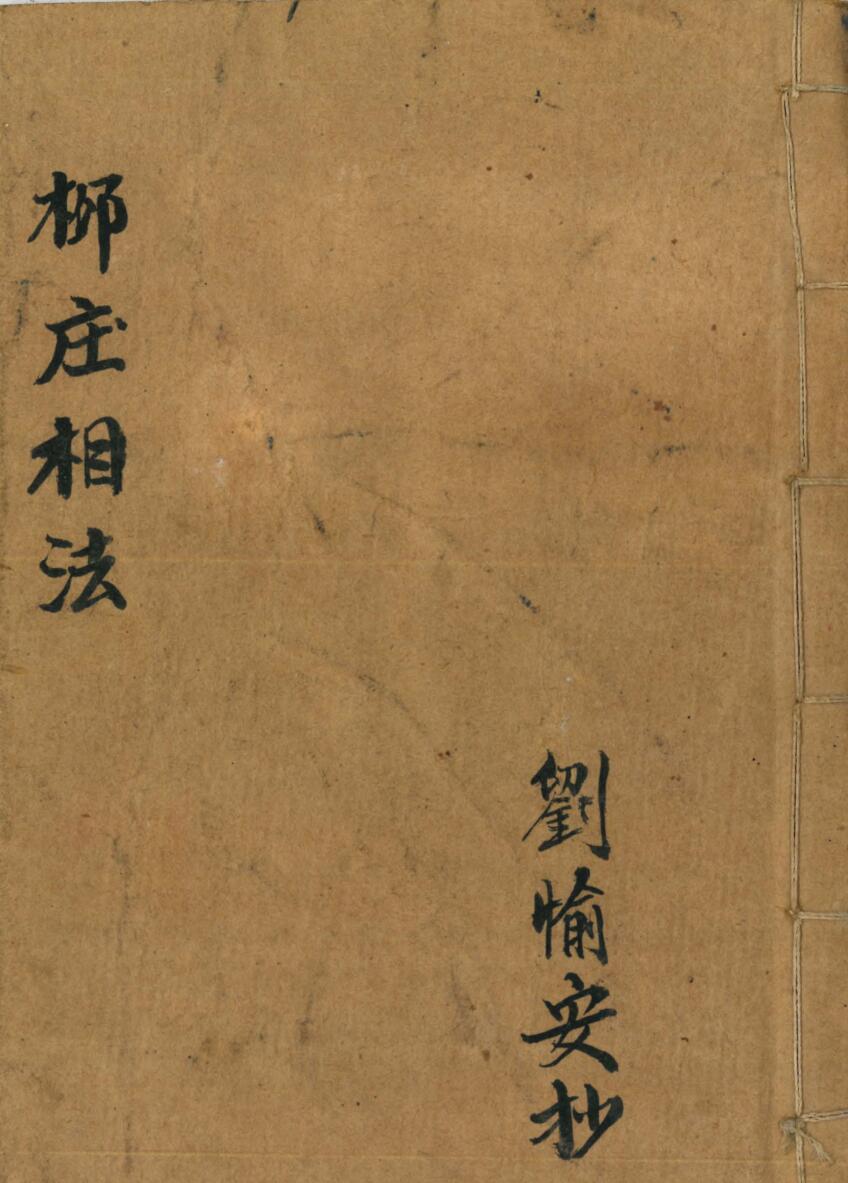 柳庄相法
劉愉安抄